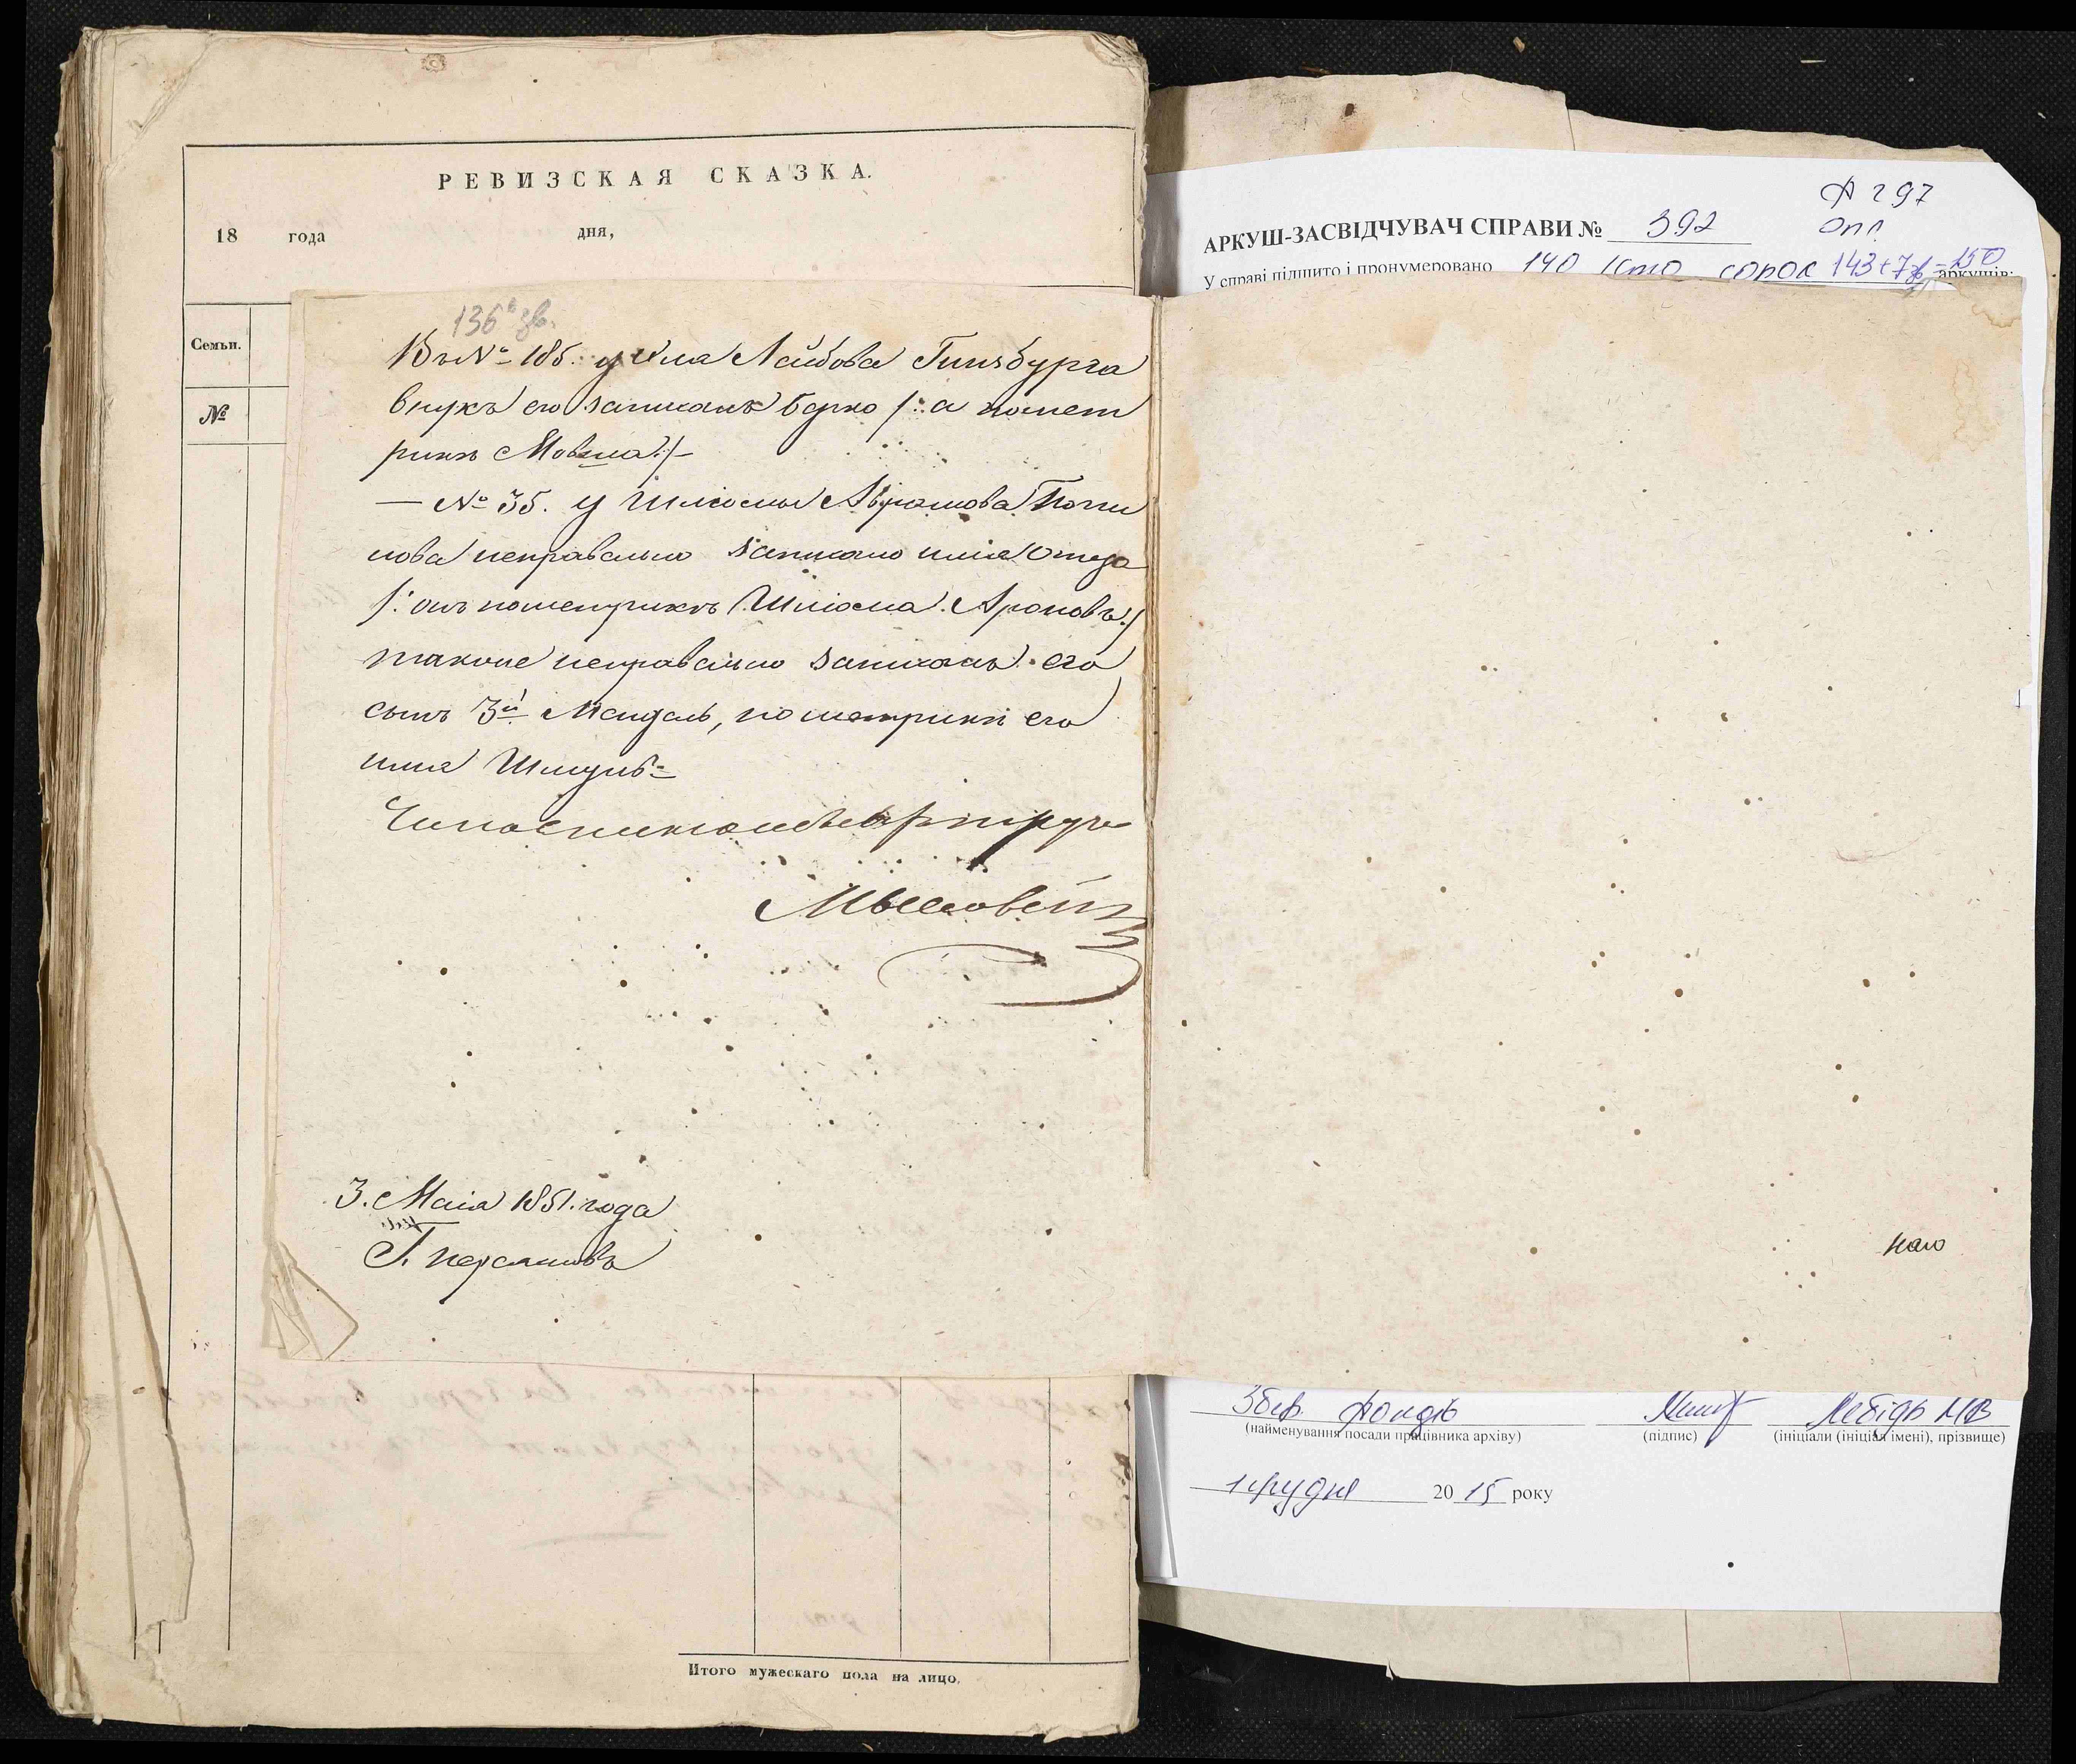 РЕВИЗСКАЯ СКАЗКА.
18 года дня,
Семьи.
№
136 зв.
Въ № 185. у Лейбова Гинзбурга
внукъ его записанъ Берко /: а помет
рикѣ Мовша :/
— № 35. у Шліомы Аврамова
нова неправильно записано имя отца
/: онъ пометрикѣ Шліома Ароновъ :/
также неправильно записанъ его
сынъ 3й Мендель, по метрики его
имя Шмуль =
3. Маія 1851. года
Итого мужескаго пола на лицо.
АРКУШ-ЗАСВІДЧУВАЧ СПРАВИ № 392
297
оп 1
У справі підшито і пронумеровано 140 /сто сорок 143+7 = 150 аркушів;
(найменування посади працівника архіву) (підпис) (ініціали (ініціал імені), прізвище)
Лебідь МВ
1 грудня 20 15 року